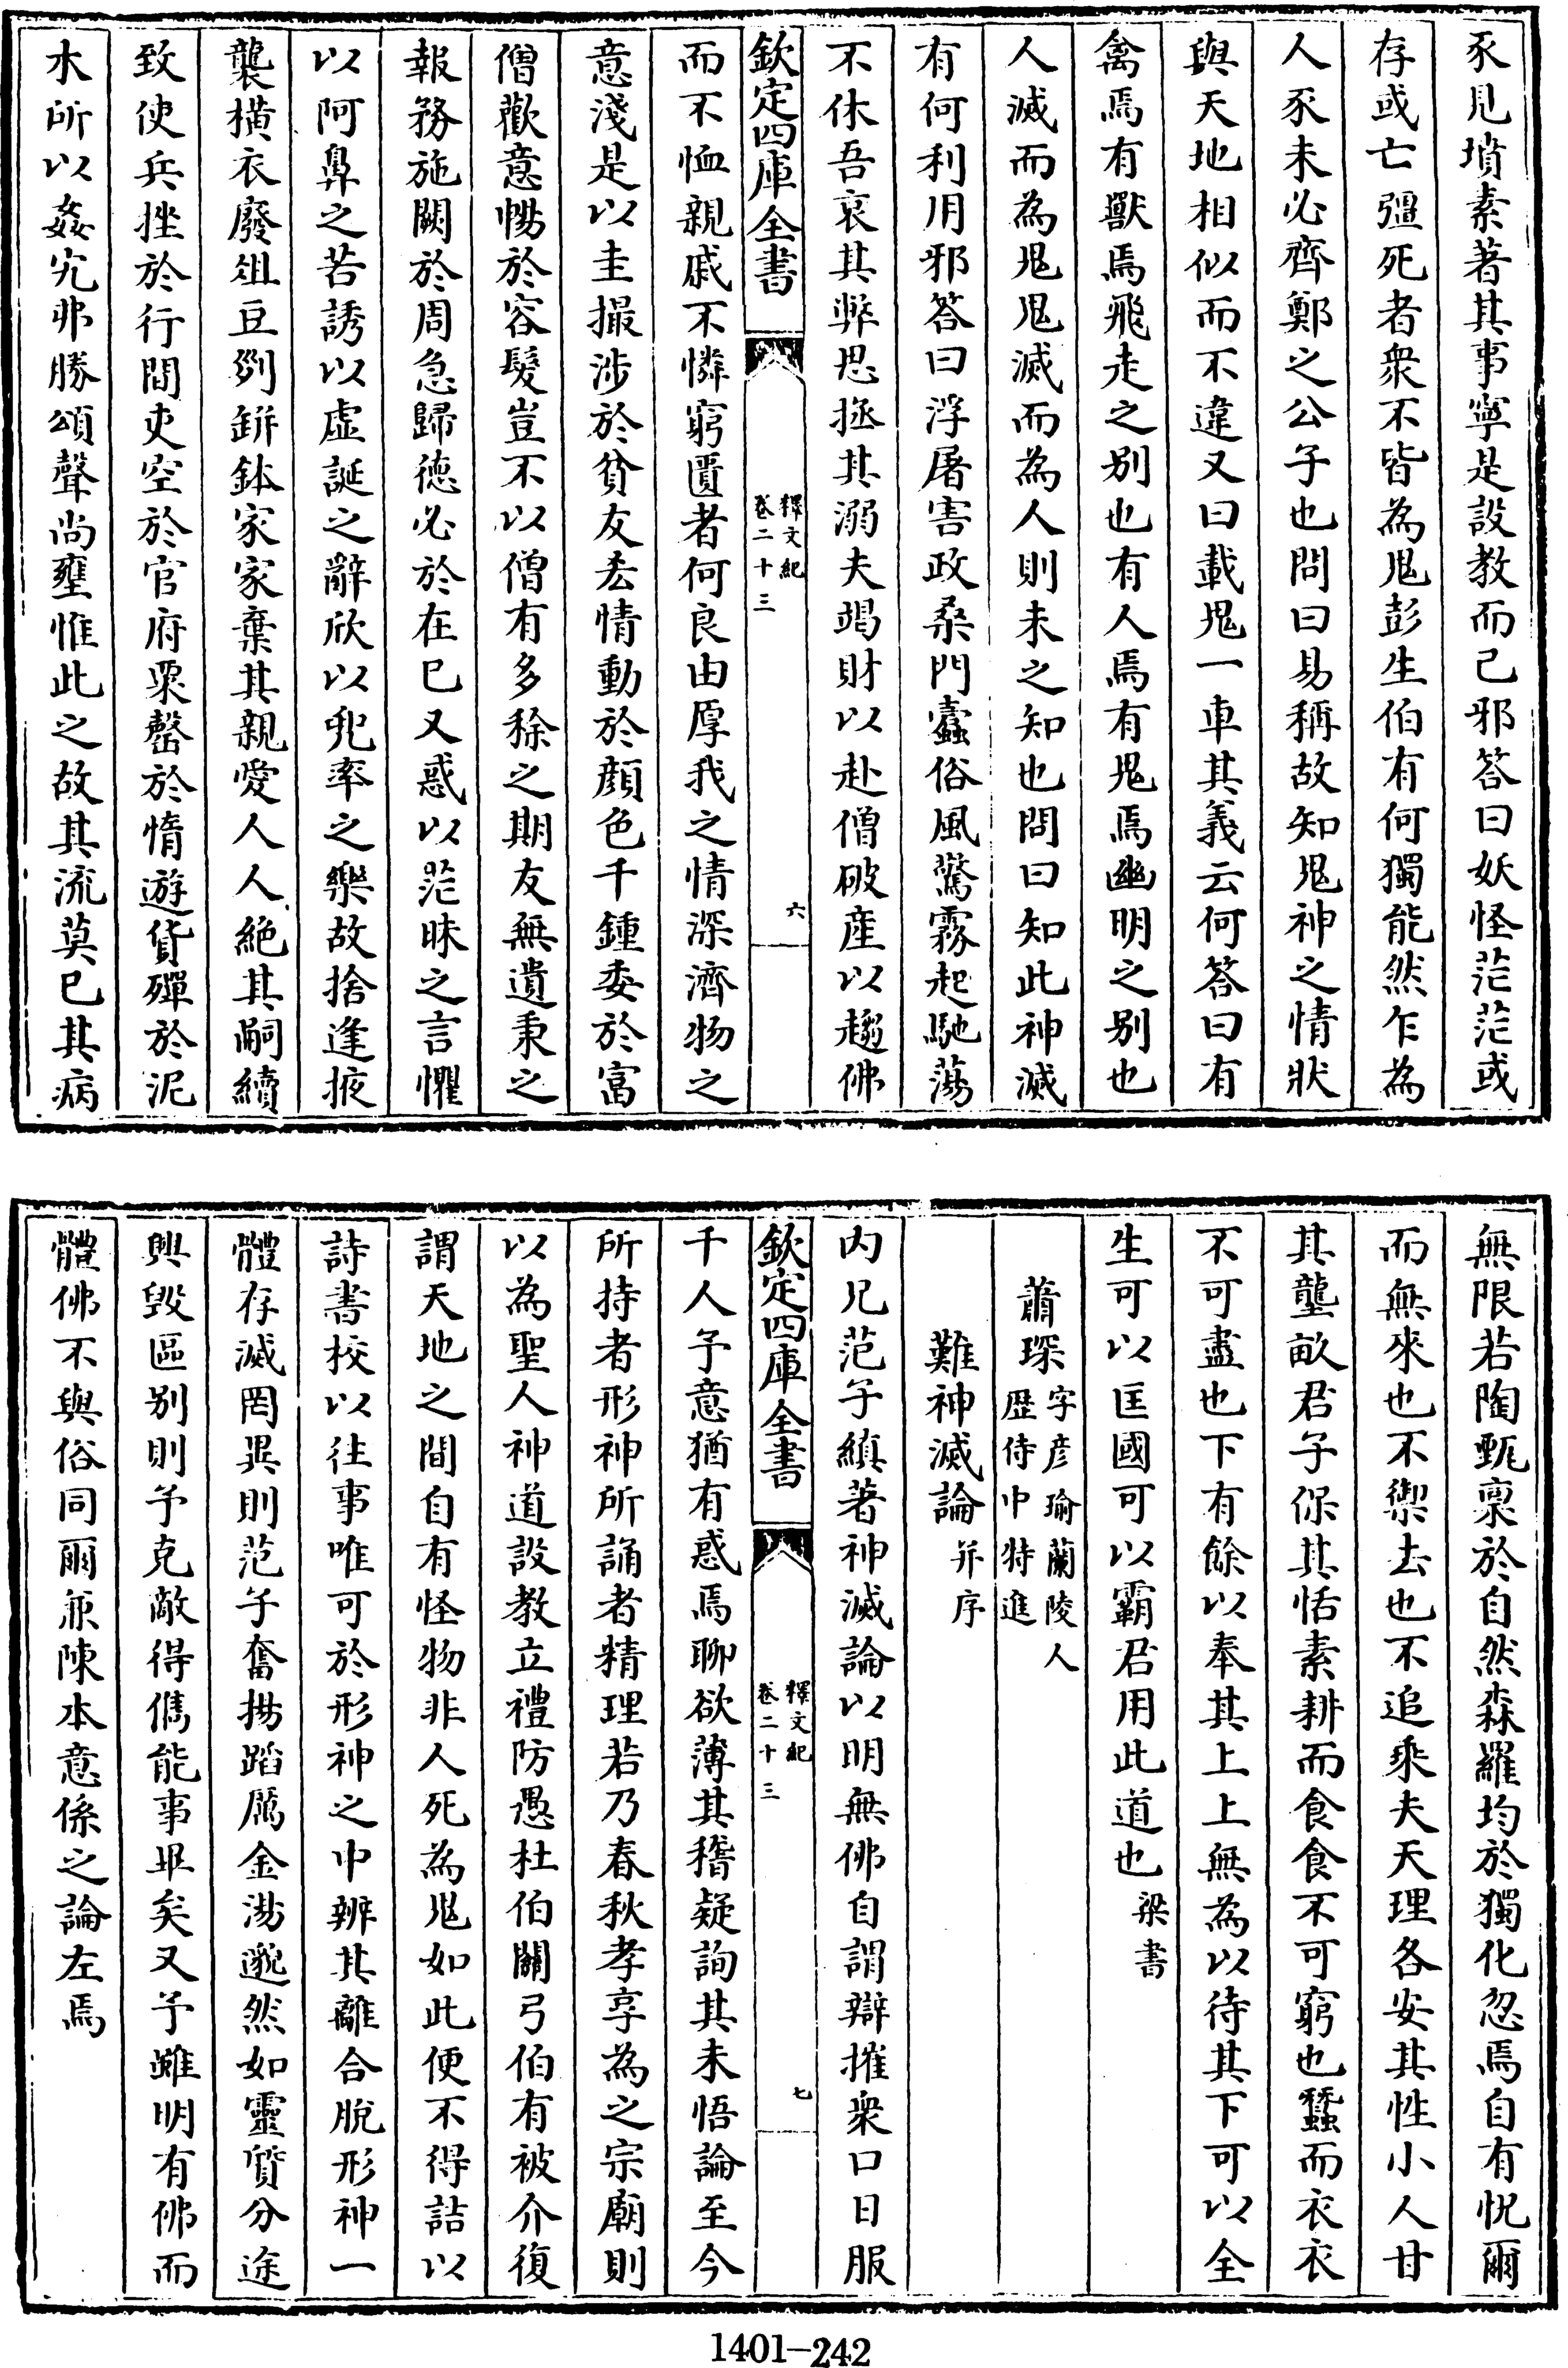 豕見墳素著其事寧是設教而已邪答曰妖怪茫茫或
存或亡彊死者衆不皆為鬼彭生伯有何獨能然乍為
人豕未必齊鄭之公子也問曰易稱故知鬼神之情狀
與天地相似而不違又曰載鬼一車其義云何答曰有
禽焉有獸焉飛走之別也有人焉有鬼焉幽明之別也
人滅而為鬼鬼滅而為人則未之知也問曰知此神滅
有何利用邪答曰浮屠害政桑門蠹俗風驚霧起馳蕩
不休吾哀其弊思拯其溺夫竭財以赴僧破産以趨佛
欽定四庫全書
釋文紀
卷二十三
六
而不恤親戚不憐窮匱者何良由厚我之情深濟物之
意淺是以圭撮涉於貧友吝情動於顔色千鍾委於富
僧歡意暢於容髮豈不以僧有多稌之期友無遺秉之
報務施闕於周急歸德必於在已又惑以茫昧之言懼
以阿鼻之苦誘以虛誕之辭欣以兜率之樂故捨逢掖
襲橫衣廢俎豆列缾鉢家家棄其親愛人人絶其嗣續
致使兵挫於行間吏空於官府粟罄於惰遊貨殫於泥
木所以姦宄弗勝頌聲尚壅惟此之故其流莫已其病
無限若陶甄禀於自然森羅均於獨化忽焉自有怳爾
而無來也不禦去也不追乘夫天理各安其性小人甘
其壟畝君子保其恬素耕而食食不可窮也蠶而衣衣
不可盡也下有餘以奉其上上無為以待其下可以全
生可以匡國可以霸君用此道也梁書
蕭琛字彦瑜蘭陵人
歴侍中特進
難神滅論并序
内兄范子縝著神滅論以明無佛自謂辯摧衆口日服
欽定四庫全書
釋文紀
卷二十三
七
千人予意猶有惑焉聊欲薄其稽疑詢其未悟論至今
所持者形神所誦者精理若乃春秋孝享為之宗廟則
以為聖人神道設教立禮防愚杜伯關弓伯有被介復
謂天地之間自有怪物非人死為鬼如此便不得詰以
詩書校以往事唯可於形神之中辨其離合脫形神一
體存滅罔異則范子奮揚蹈厲金湯邈然如靈質分途
興毀區別則予克敵得儁能事畢矣又予雖明有佛而
體佛不與俗同爾兼陳本意係之論左焉
1401-242